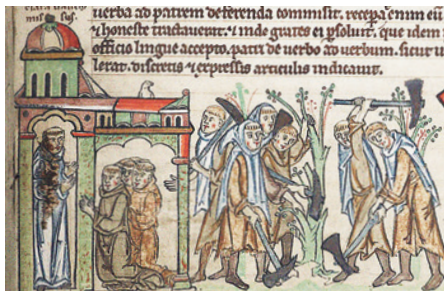 uerba ad patrem deferenda commisit. recepta enim
& honeste tractauerit. & inde grates ei psoluit. que idem
officio lingue accepto. patri de uerbo ad uerbum. sicut
lerat. discretis & expressis articulis indicauit.
sus.